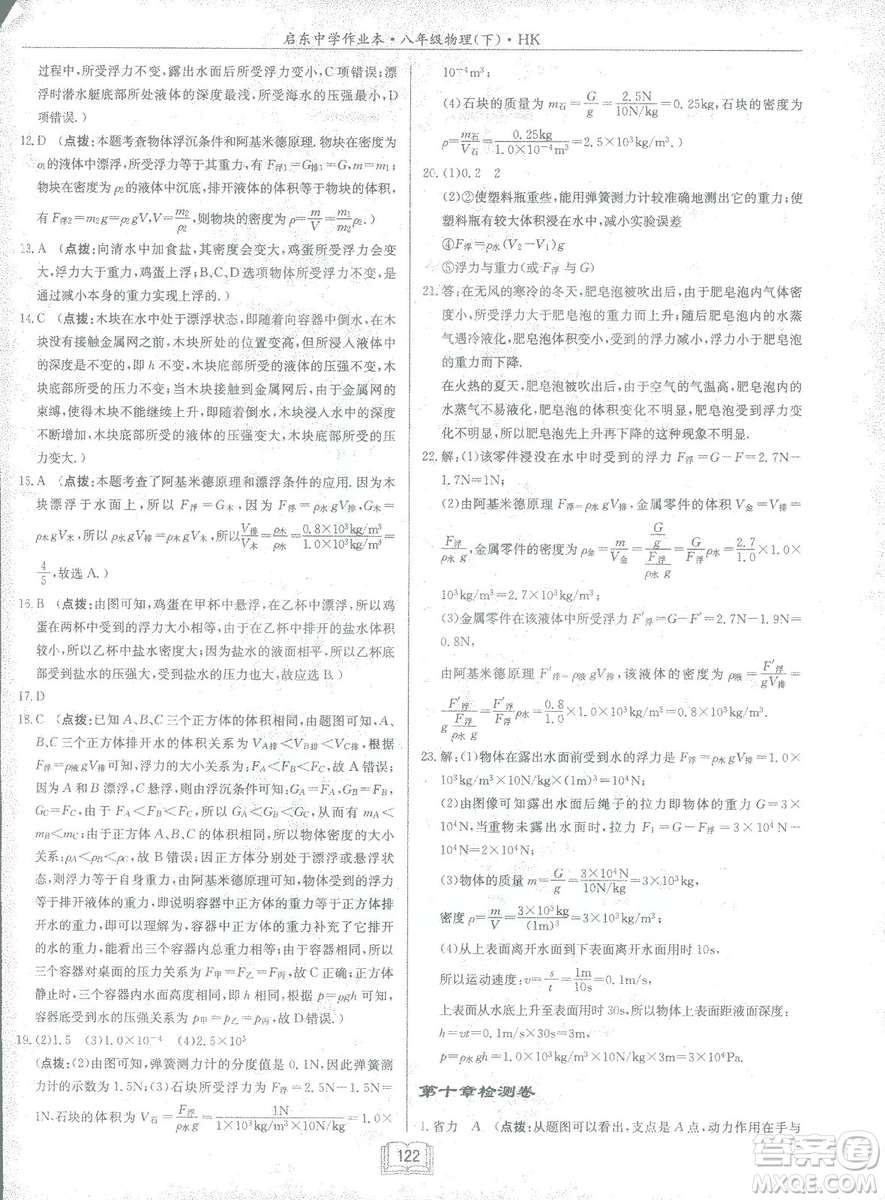 启东中学作业本·八年级物理(下)·HK
过程中,所受浮力不变,露出水面后所受浮力变小,C项错误;漂
浮时潜水艇底部所处液体的深度最浅,所受海水的压强最小,D
项错误.)
12. D (点拨:本题考查物体浮沉条件和阿基米德原理.物块在密度为
ρ1的液体中漂浮,所受浮力等于其重力,有F浮1=G,m=m1;物块
在密度为ρ2的液体中沉底,排开液体的体积等于物块的体积,
有F浮2=m2g=ρ2gV,V=m2/ρ2,则物块的密度为ρ=m/V=m1/m2·ρ2.)
13. A (点拨:向清水中加食盐,其密度会变大,鸡蛋所受浮力会变
大,浮力大于重力,鸡蛋上浮;B、C、D选项物体所受浮力不变,是
通过减小本身的重力实现上浮的.)
14. C (点拨:木块在水中处于漂浮状态,即随着向容器中倒水,在
木块没有接触金属网之前,木块所处的位置变高,但木块浸入水
中的深度是不变的,即h不变,因此木块底部所受的液体的压强
不变,木块底部所受的压力不变;当木块碰到金属网后,由于金属网的
束缚,使得木块不能继续上升,即随着倒水,木块浸入水中的深度
不断增加,木块底部所受的液体的压强变大,木块底部所受的压
力变大.)
15. A (点拨:本题考查了阿基米德原理和漂浮条件的应用.因为木
块漂浮于水面上,所以F浮=G木,因为F浮=ρ水gV排,G木=
ρ木gV木,所以ρ水gV排=ρ木gV木,所以V排/V木=ρ木/ρ水=0.8×10³kg/m³/1.0×10³kg/m³=
4/5,故选A.)
16. B (点拨:由图可知,鸡蛋在甲杯中悬浮,在乙杯中漂浮,所以鸡
蛋在两杯中所受的浮力大小相等;在乙杯中排开的盐水体积
较小,所以乙杯中盐水的密度大;盐水的液面相平,所以乙杯底
部受到盐水的压强大,压力也大,故应选B.)
17. D
18. C (点拨:已知A、B、C三个正方体的体积相同,由题图可知,A、
B、C三个正方体排开水的体积关系为VA排<VB排<VC排,根据
F浮=ρ液gV排可知,浮力的大小关系为FA<FB<FC,故A错误;因
为A和B漂浮,C悬浮,则由浮沉条件可知:GA=FA,GB=FB,
GC=FC,由于FA<FB<FC,所以GA<GB<GC,所以有mA<
mB<mC;由于正方体A、B、C的体积相同,所以物块密度的大小
关系:ρA<ρB<ρC,故B错误;因正方体分别处于漂浮或悬浮状
态,则浮力等于自身重力,由阿基米德原理可知,浮力等于排开
水的重力,即说明容器中正方体的重力等于正方体排开水的重
力,即可以理解为,容器中正方体的重力补充了它排开水的重
力,能看出三个容器内总重力相等;由于容器相同,所以三个容
器对桌面的压力关系为F甲=F乙=F丙,故C正确;正方体
静止时,三个容器内水面高度相同,即h相等,根据p=ρgh可知,
容器底部受到水的压强关系为p甲=p乙=p丙,故D错误.)
19. (2)1.5 (3)1.0×10⁻⁴ (4)2.5×10³
(点拨:(2)由图可知,弹簧测力计的分度值是0.1N,则弹簧测
力计的示数为1.5N;(3)石块所受浮力为F浮=G-F=2.5N-1.5N=
1N,石块的体积为V石=F浮/ρ水g=1N/1×10³kg/m³×10N/kg=1.0×
10⁻⁴m³;
(4)石块的质量为m石=G/g=2.5N/10N/kg=0.25kg,石块的密度为
ρ石=m石/V石=0.25kg/1.0×10⁻⁴m³=2.5×10³kg/m³)
20. (1)0.2 2
(2)使塑料瓶重些,能用弹簧测力计较准确地测出它的重力;使
塑料瓶有较大体积浸在水中,减小实验误差
④F浮=ρ水(V2-V1)g
⑤浮力与重力(或F浮与G)
21. 答:在无风的寒冷的冬天,肥皂泡被吹出后,由于肥皂泡内气体温
度高,密度小,浮力大于肥皂泡的重力而上升;肥皂泡内的水蒸
气遇冷液化,肥皂泡的体积变小,导致浮力变小,浮力小于肥皂泡的
重力而下降.
在火热的夏天,肥皂泡被吹出后,由于空气的气温高,肥皂泡内的
水蒸气不易液化,肥皂泡的体积变化不明显,肥皂泡受到的浮力变化
不明显,所以肥皂泡先上升后下降的这种现象不明显.
22. 解:(1)该零件浸没在水中时受到的浮力F浮=G-F=2.7N-
1.7N=1N;
(2)由阿基米德原理F浮=ρ水gV排得,金属零件的体积V金=V排=
F浮/ρ水g,金属零件的密度ρ金=m/V金=G/g/F浮/ρ水g=G/F浮ρ水=2.7N/1N×1.0×
10³kg/m³=2.7×10³kg/m³;
(3)金属零件在该液体中所受浮力F′浮=G-F′=2.7N-1.9N=
0.8N,
由阿基米德原理F浮=ρ液gV排得,该液体的密度ρ液=F′浮/gV排=
F′浮/g/F浮/ρ水g=F′浮/F浮ρ水=0.8/1.0×1.0×10³kg/m³=0.8×10³kg/m³
23. 解:(1)物体在露出水面前受到水的浮力是F浮=ρ水gV排=1.0×
10³kg/m³×10N/kg×(1m)³=10⁴N;
(2)由图像可知露出水面后绳子的拉力即物体的重力G=3×
10⁴N,当重物未露出水面时,拉力F1=G-F浮=3×10⁴N-
10⁴N=2×10⁴N;
(3)物体的质量m=G/g=3×10⁴N/10N/kg=3×10³kg,
密度ρ=m/V=3×10³kg/(1m)³=3×10³kg/m³;
(4)从上表面离开水面到下表面离开水面用时10s,
所以运动速度v=s/t=1m/10s=0.1m/s,
上表面从水底上升至水面用时30s,所以物体上表面距液面深度
h=vt=0.1m/s×30s=3m,
p=ρ水gh=1.0×10³kg/m³×10N/kg×3m=3×10⁴Pa.
第十章检测卷
1. 省力 A (点拨:从题图可以看出,支点是A点,动力作用在手与
122
答案圈
MXQE.COM